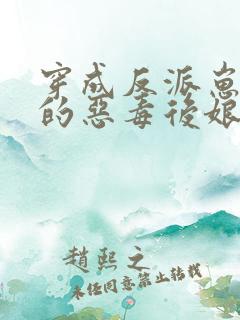 穿成反派崽
的惡毒後娘
趙熙之
未经同意禁止转载